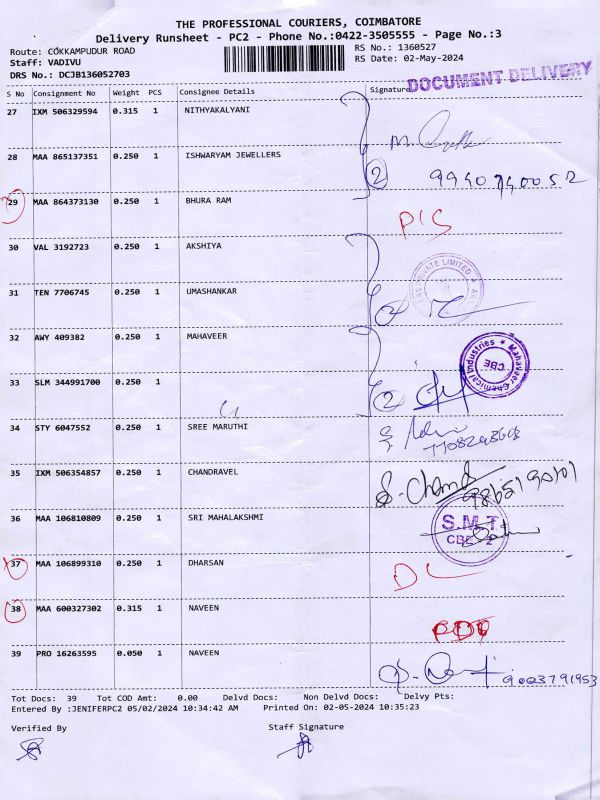 THE PROFESSIONAL COURIERS, COIMBATORE
Delivery Runsheet - PC2 - Phone No.:0422-3505555 - Page No.:3
Route: COKKAMPUDUR ROAD
RS No.: 1360527
Staff: VADIVU
RS Date: 02-May-2024
DRS No.: DCJB136052703
DOCUMENT DELIVERY
S No Consignment No Weight PCS Consignee Details Signature
27 IXM 506329594 0.315 1 NITHYAKALYANI
28 MAA 865137351 0.250 1 ISHWARYAM JEWELLERS
2 9940740052
29 MAA 864373130 0.250 1 BHURA RAM
30 VAL 3192723 0.250 1 AKSHIYA
PRIVATE LIMITED
31 TEN 7706745 0.250 1 UMASHANKAR
2
32 AWY 409382 0.250 1 MAHAVEER
Mahaveer Chemical Industries
CBE
33 SLM 344991700 0.250 1
2
34 STY 6047552 0.250 1 SREE MARUTHI
35 IXM 506354857 0.250 1 CHANDRAVEL
S. Chand
36 MAA 106810809 0.250 1 SRI MAHALAKSHMI
S.M.T
CBE-2
37 MAA 106899310 0.250 1 DHARSAN
DL
38 MAA 600327302 0.315 1 NAVEEN
39 PRO 16263595 0.050 1 NAVEEN
9003791953
Tot Docs: 39 Tot COD Amt: 0.00 Delvd Docs: Non Delvd Docs: Delvy Pts:
Entered By :JENIFERPC2 05/02/2024 10:34:42 AM Printed On: 02-05-2024 10:35:23
Verified By Staff Signature